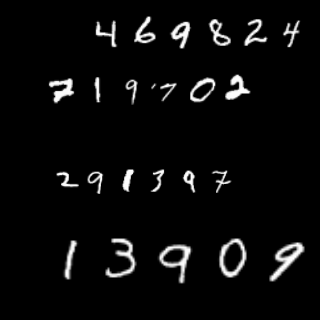 469824
719702
291397
13909